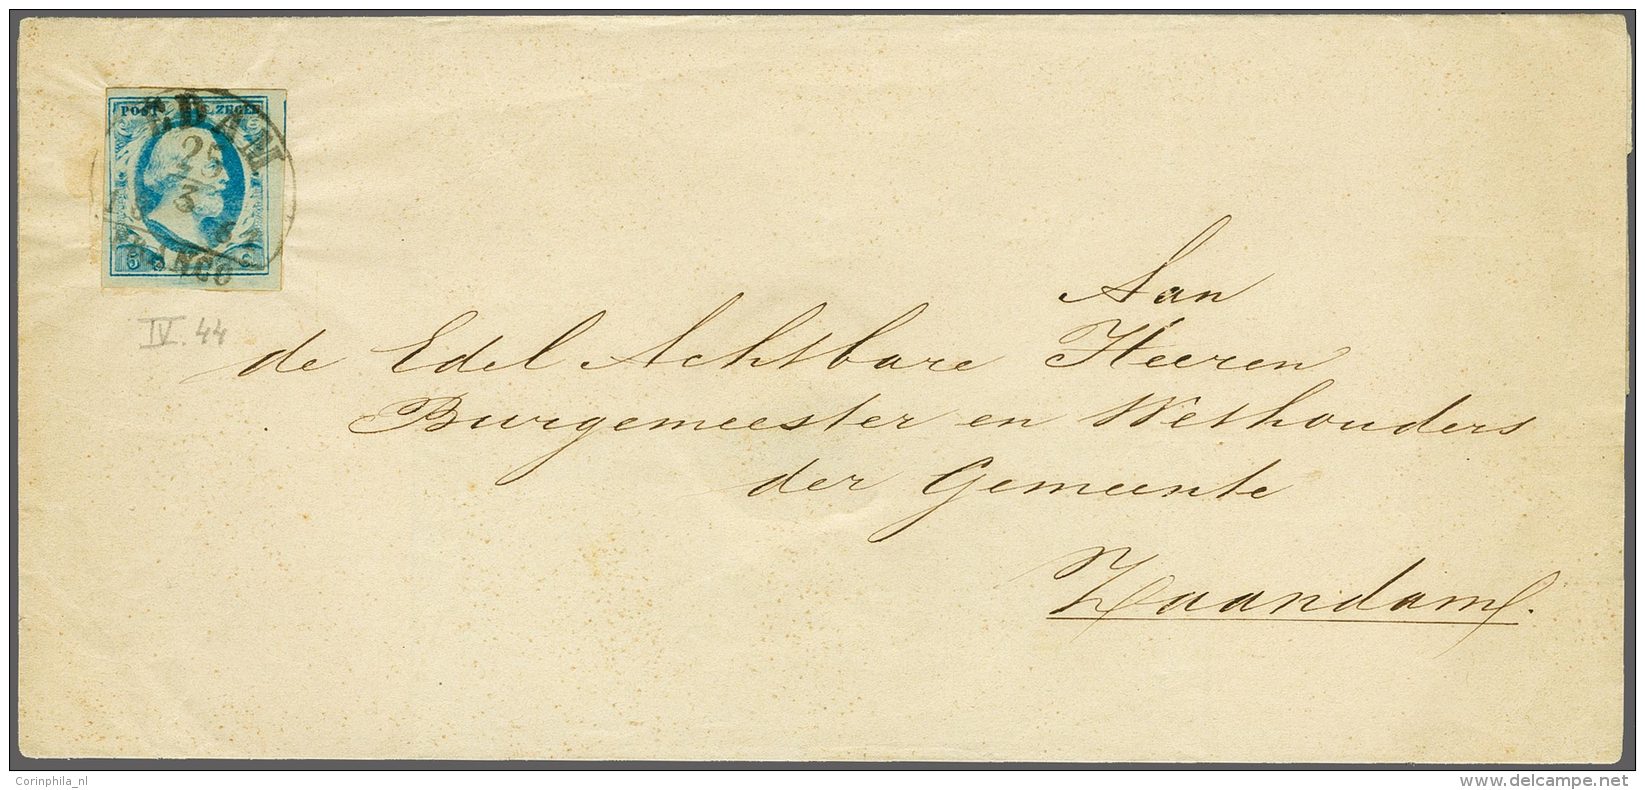 POST ZEGEL
EDAM
25
3
FRANCO
5 C
IV. 44
Aan
de Edel Achtbare Heeren
Burgemeester en Wethouders
der Gemeente
Zaandam.
Corinphila_nl
www.delcampe.net